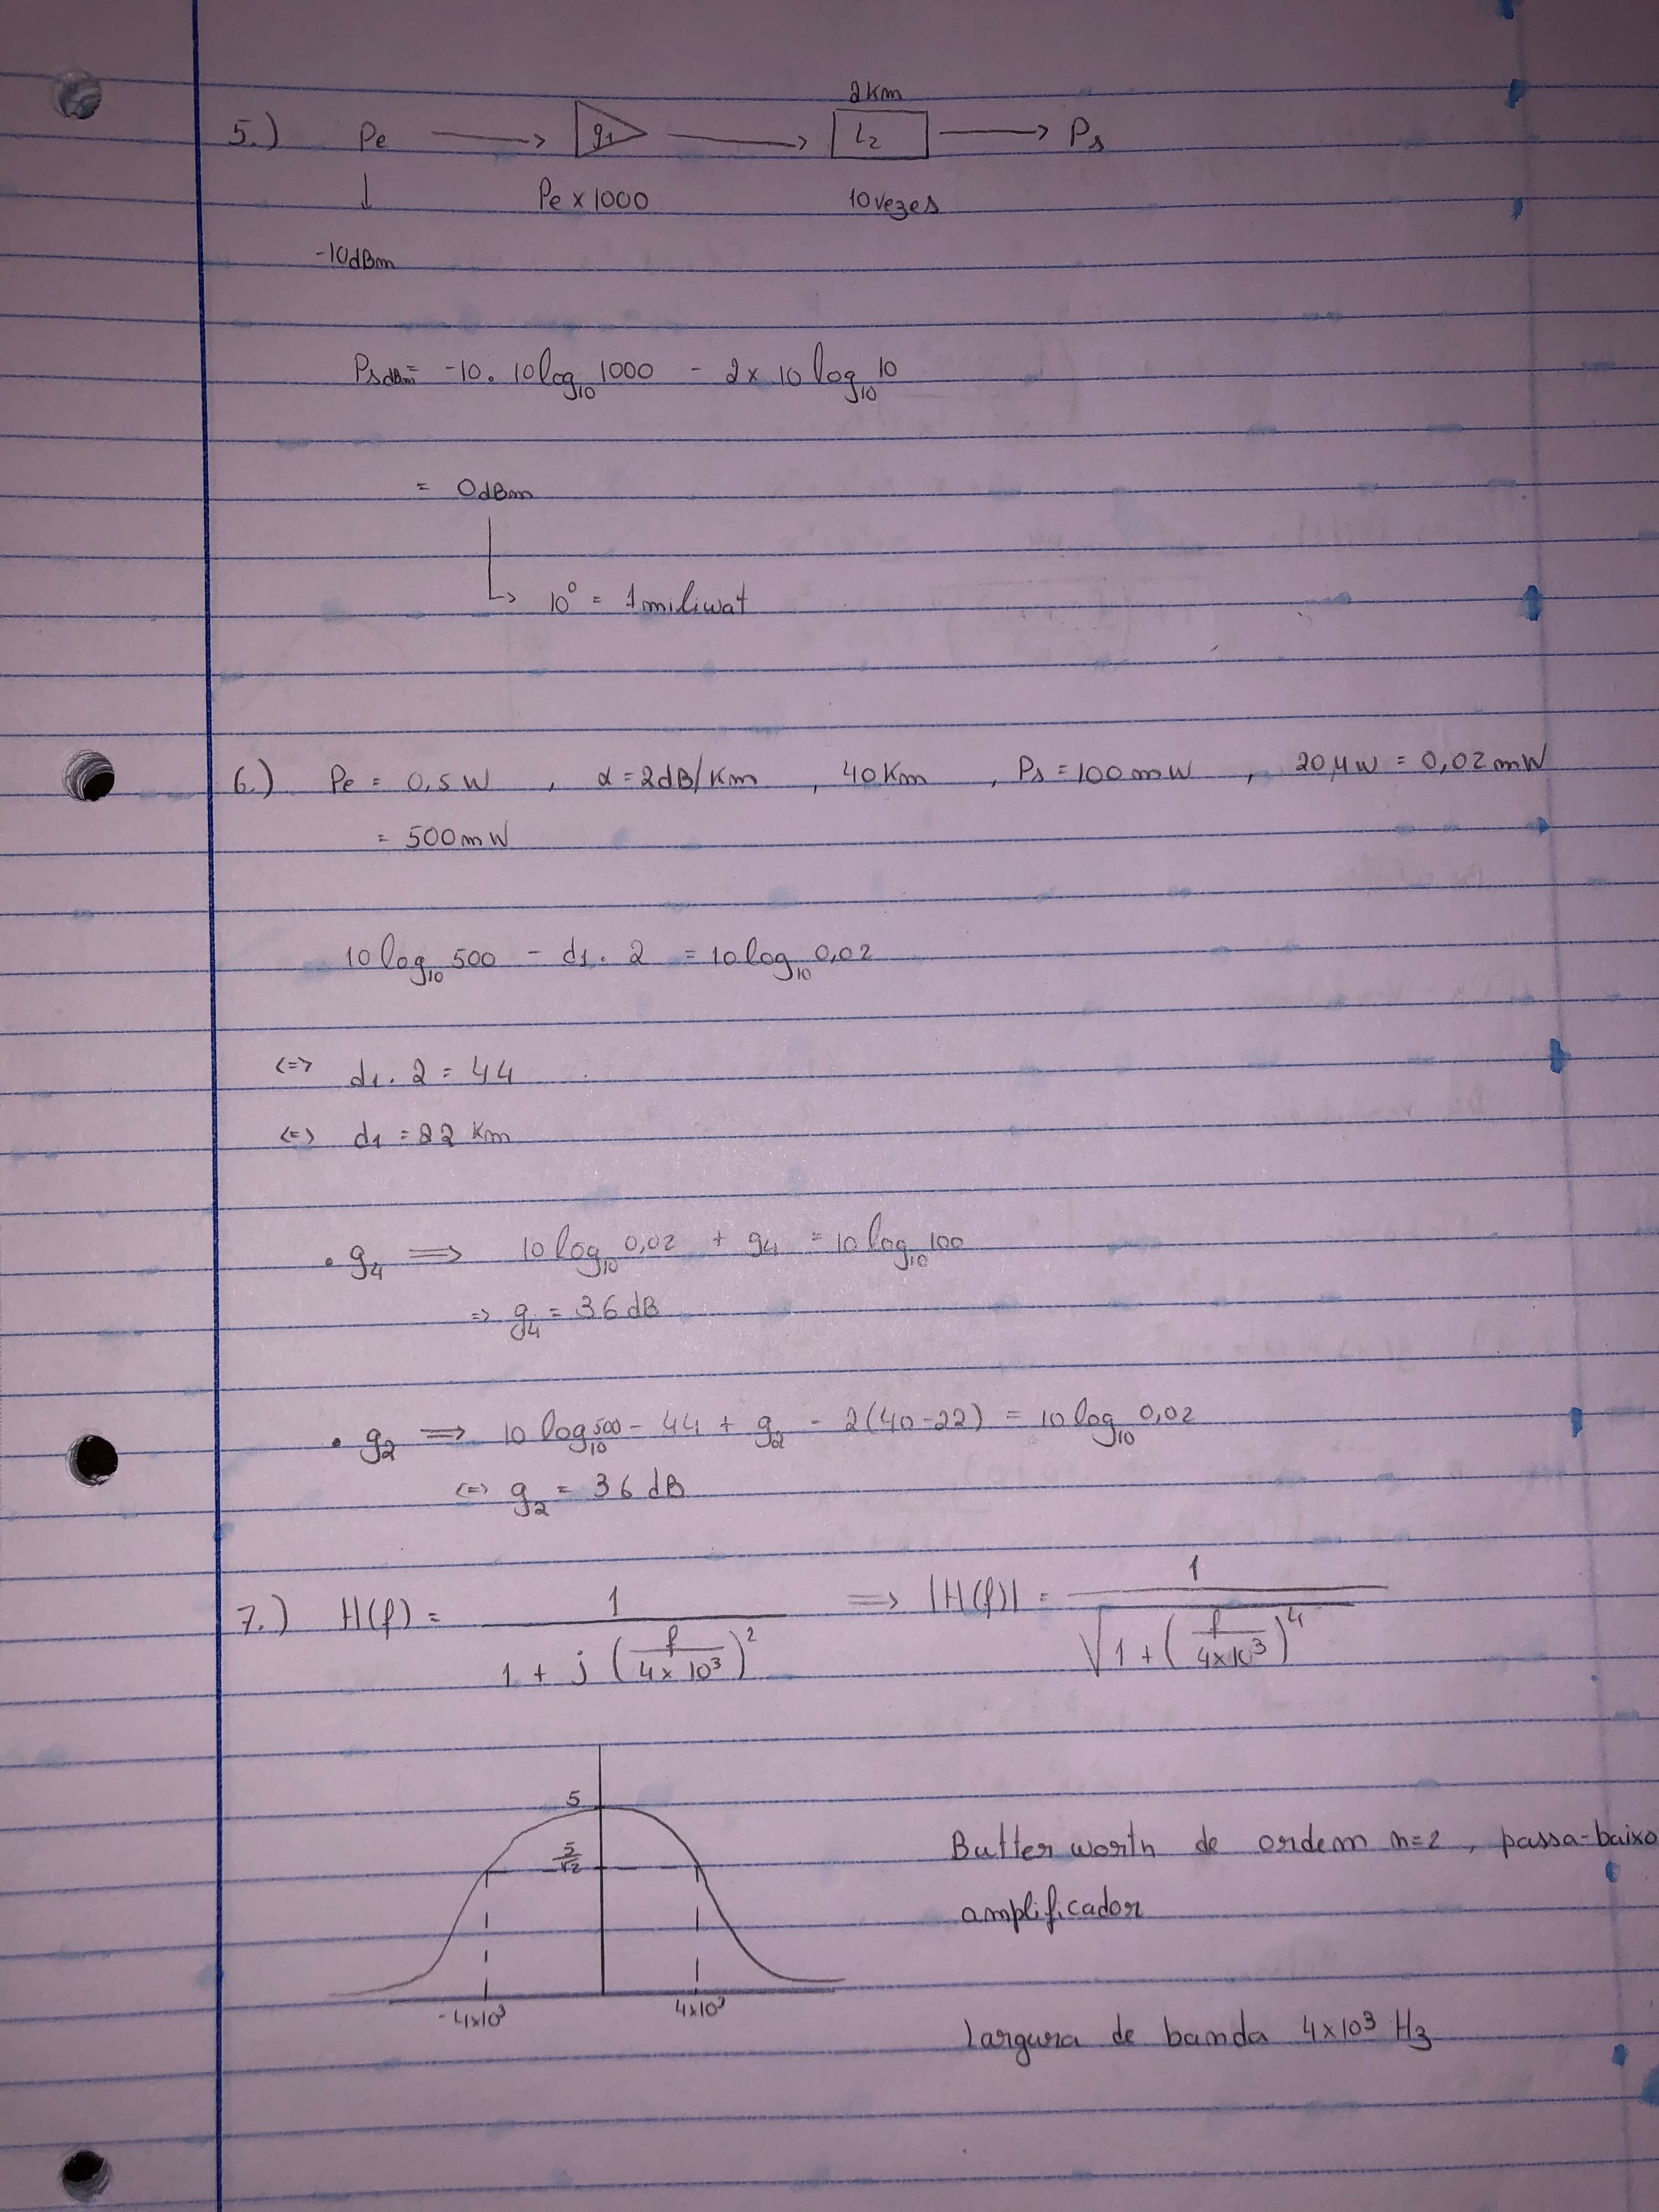 2Km
5.) Pe → g1 → L2 → Ps
↓ Pe x 1000 10 vezes
-10dBm
PsdBm = -10. 10log10 1000 - 2 x 10 log10 10
= 0dBm
↳ 10^0 = 1 miliwat
6.) Pe = 0,5 W , α = 2dB/Km , 40 Km , Ps = 100 mW , 20 μW = 0,02 mW
= 500 mW
10 log10 500 - d1. 2 = 10 log10 0,02
<=> d1. 2 = 44
<=> d1 = 22 Km
• g4 ⟹ 10 log10 0,02 + g4 = 10 log10 100
=> g4 = 36 dB
• g2 ⟹ 10 log10 500 - 44 + g2 - 2(40-22) = 10 log10 0,02
<=> g2 = 36 dB
7.) H(f) = 1 / (1 + j (f / 4x10^3)^2) ⟹ |H(f)| = 1 / √(1 + (f / 4x10^3)^4)
5
5/√2
Butterworth de ordem n=2 , passa-baixo
amplificador
-4x10^3 4x10^3
Largura de banda 4x10^3 Hz